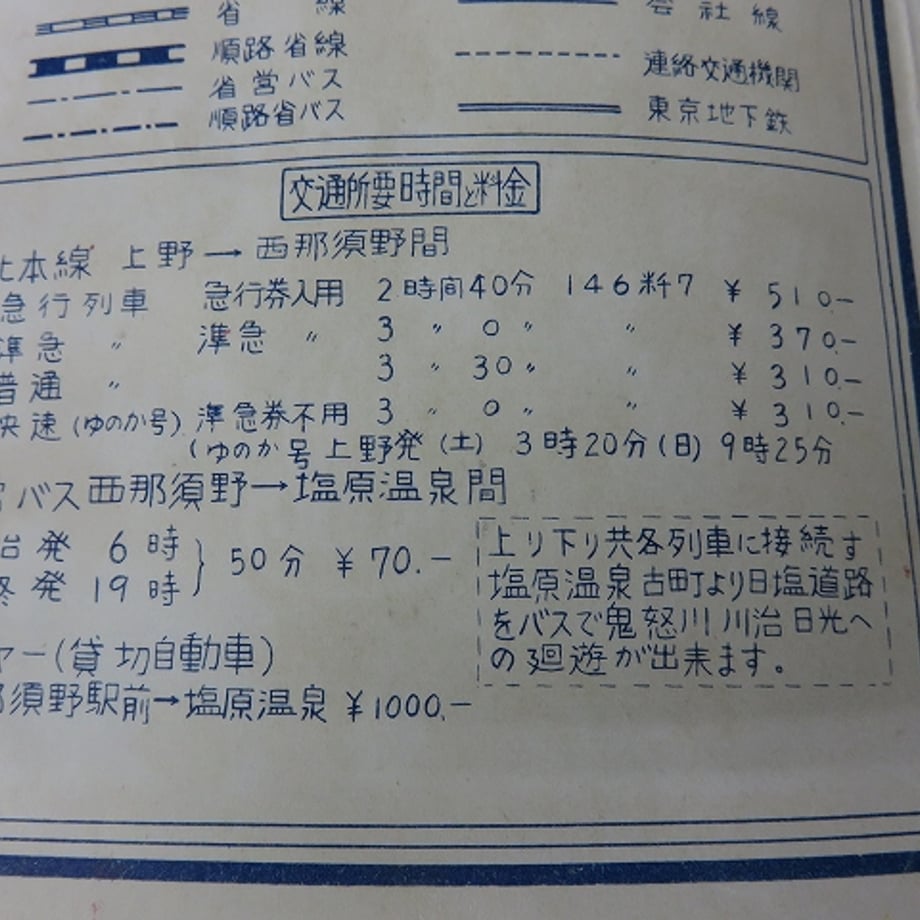 省線
会社線
順路省線
連絡交通機関
省営バス
順路省バス
東京地下鉄
交通所要時間と料金
本線 上野→西那須野間
急行列車 急行券入用 2時间40分 146粁7 ¥510.-
準急 〃 準急 〃 3 〃 0 〃 〃 ¥370.-
普通 〃 3 〃 30 〃 〃 ¥310.-
快速(ゆのか号) 準急券不用 3 〃 0 〃 〃 ¥310.-
(ゆのか号上野発(土) 3時20分(日)9時25分
バス西那須野→塩原温泉間
発 6時
発 19時
} 50分 ¥70.-
上り下り共各列車に接続す
塩原温泉古町より日塩道路
をバスで鬼怒川川治日光へ
の廻遊が出来ます。
ヤー(貸切自動車)
須野駅前→塩原温泉 ¥1000.-